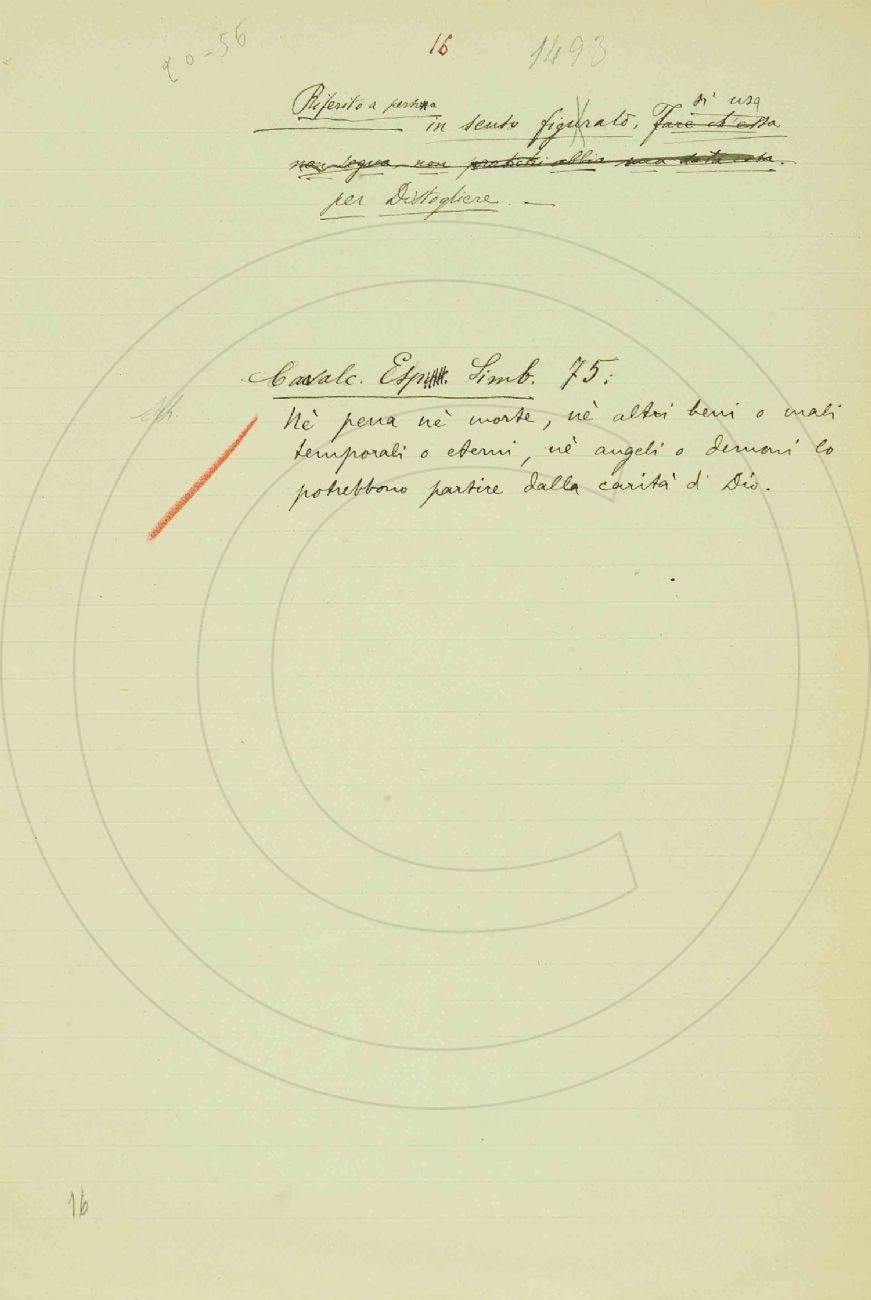 20-56 16 1493
Riferito a persona
in senso figurato, si usa
Fare ch'essa
non segua, non abbia una data cosa.
per Distogliere. —
Cavalc. Esp. Simb. 75:
Nè pena nè morte, nè altri beni o mali
temporali o eterni, nè angeli o demoni lo
potrebbono partire dalla carità d' Dio.
16